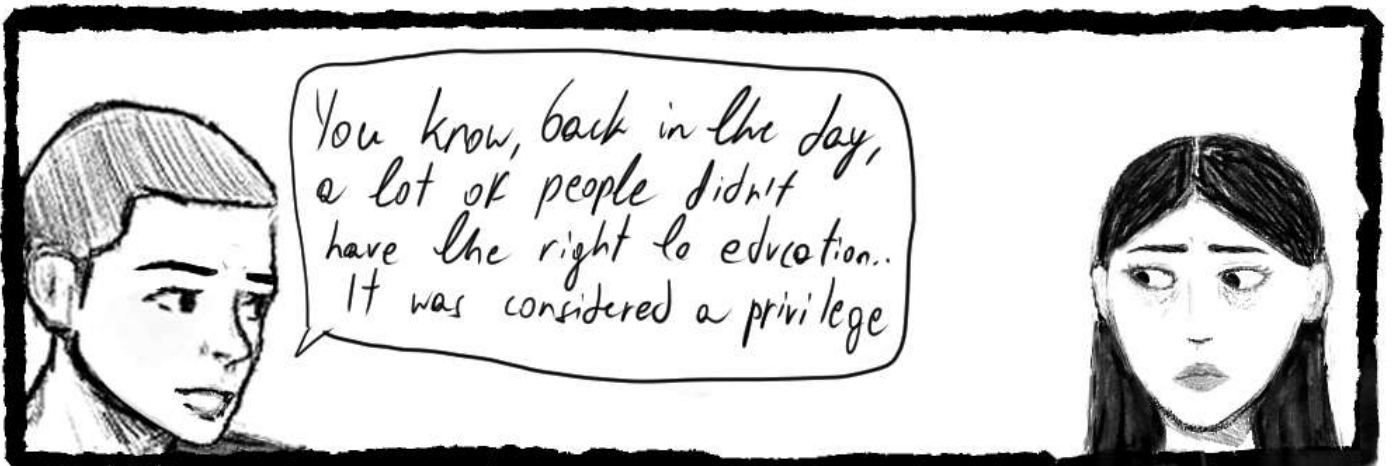 You know, back in the day,
a lot of people didn't
have the right to education..
It was considered a privilege